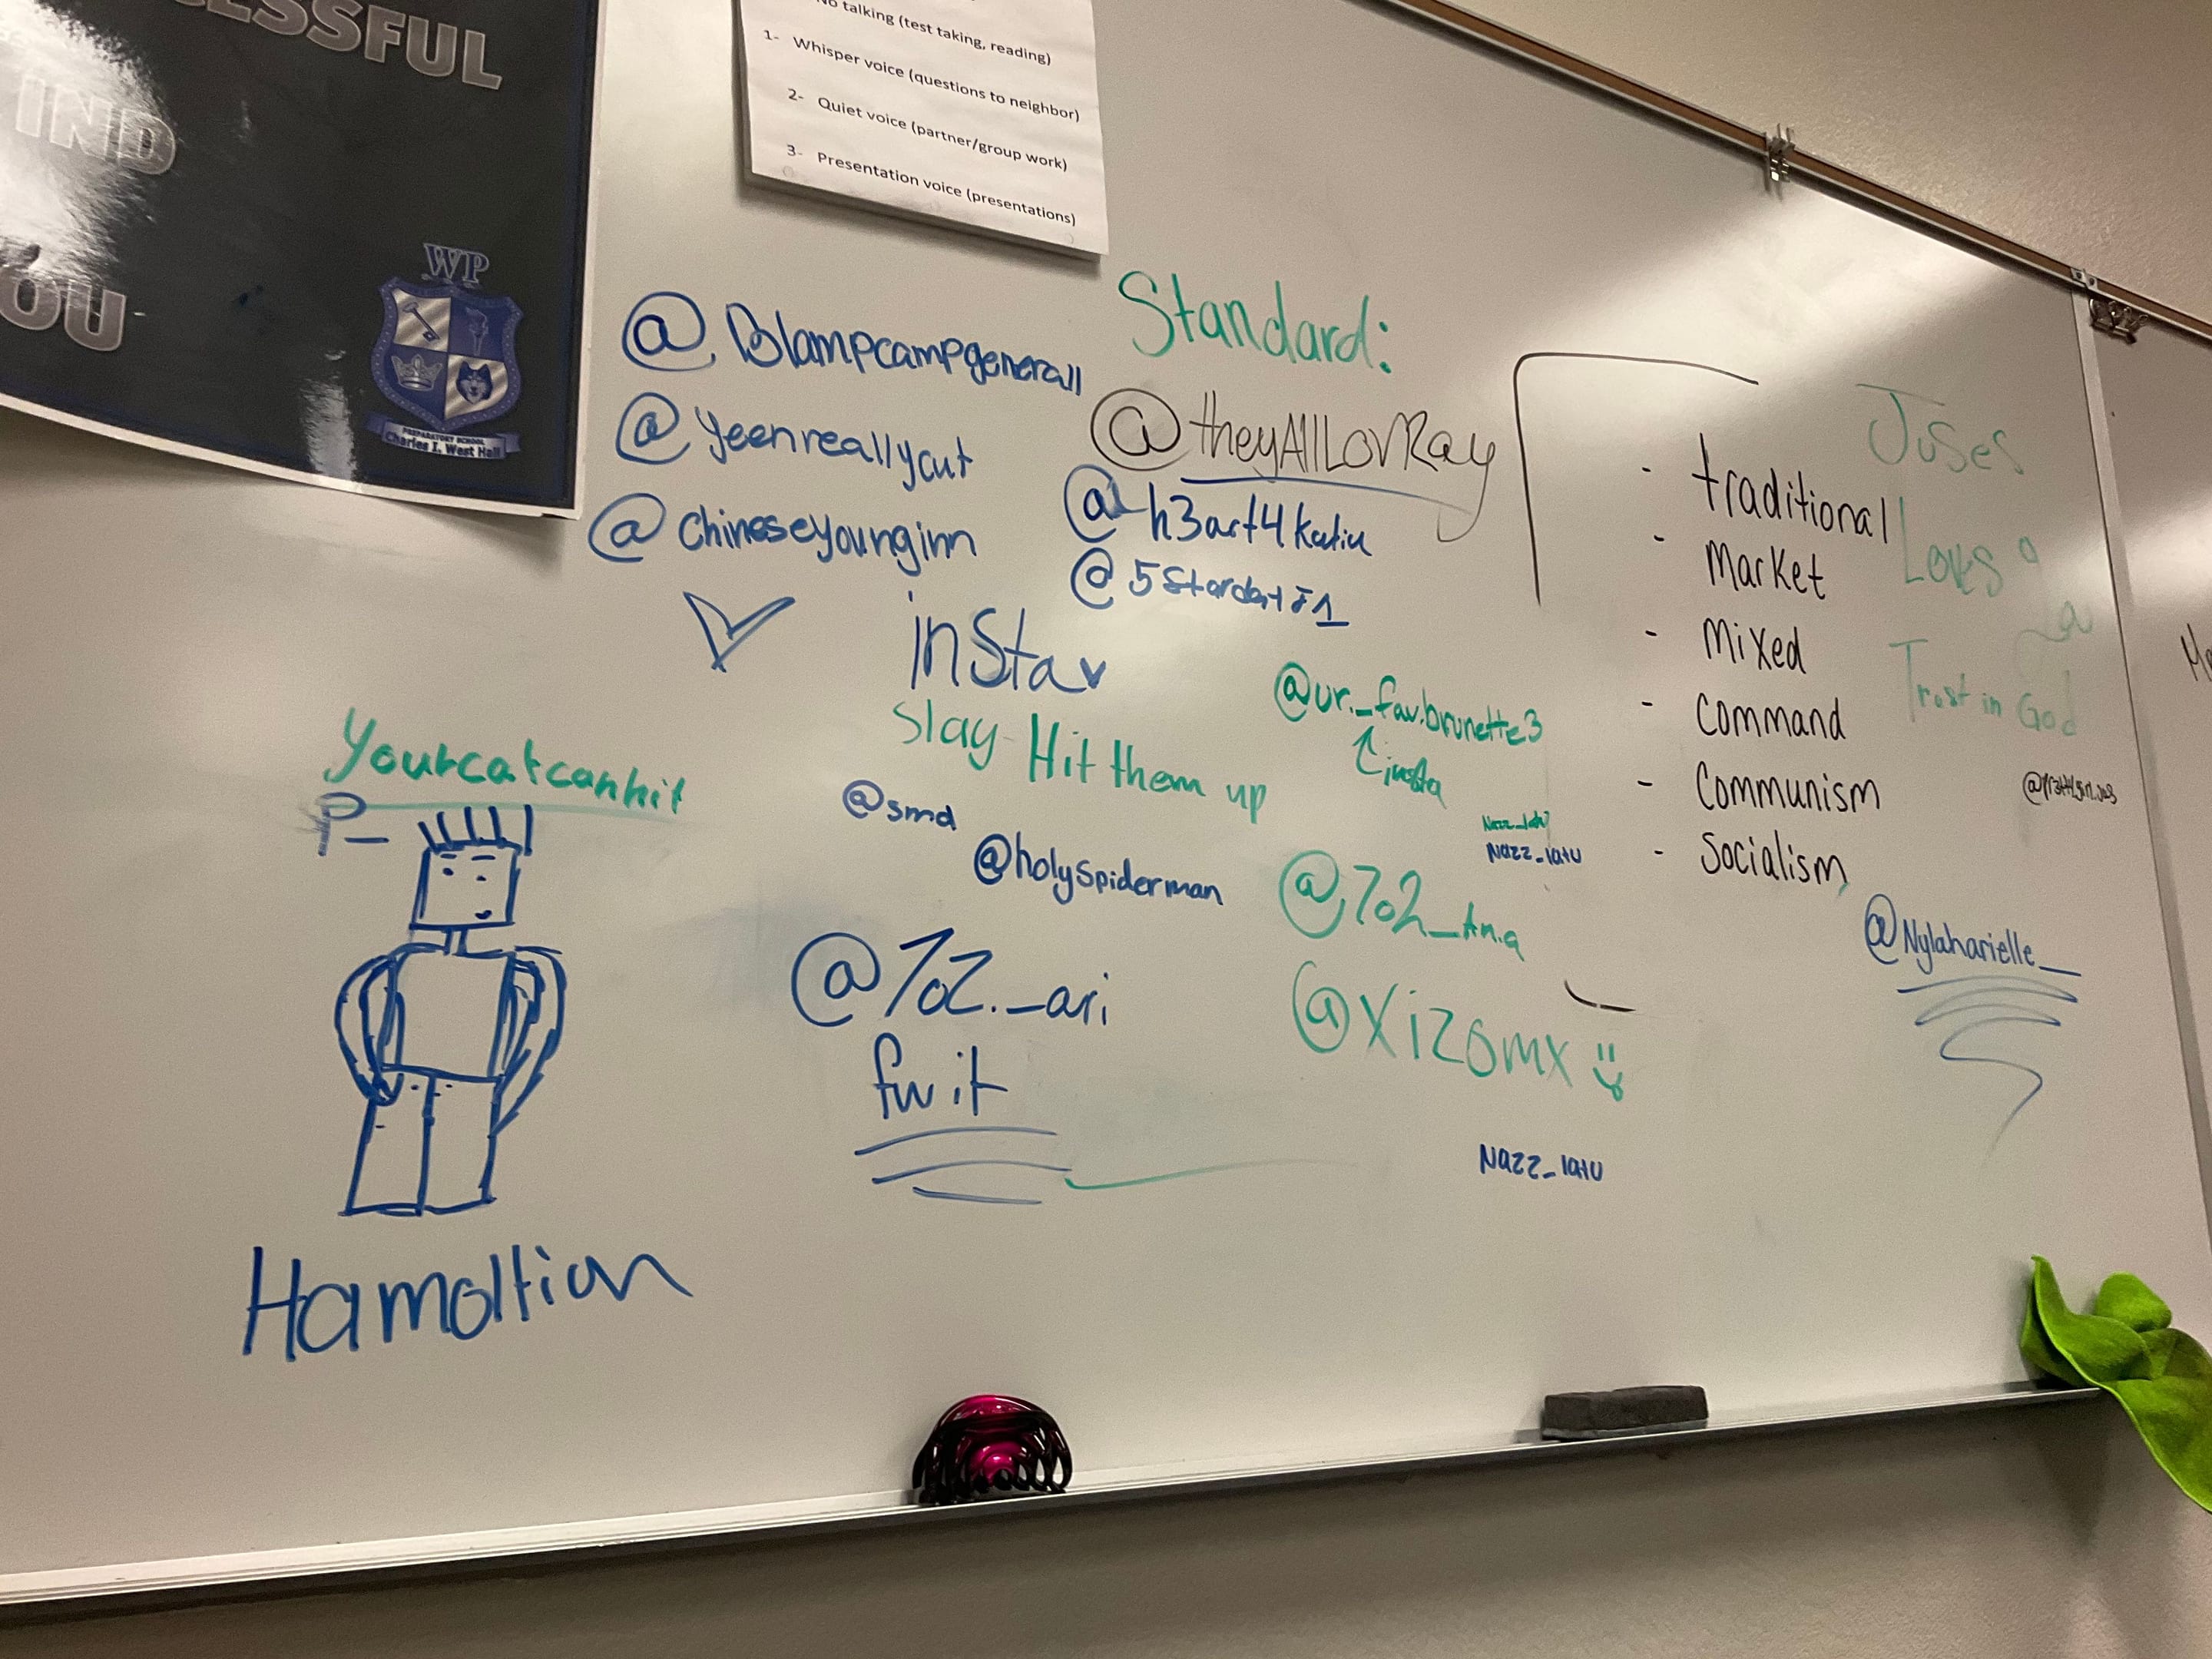 ESSFUL
IND
YOU
WP
PREPARATORY SCHOOL
Charles I. West Hall
No talking (test taking, reading)
1- Whisper voice (questions to neighbor)
2- Quiet voice (partner/group work)
3- Presentation voice (presentations)
Standard:
@Blampcampgenerall
@yeenreallycut
@chineseyounginn
@theyAllLovRay
@h3art4katiu
insta
slay Hit them up
@ur._fav.brunette3
insta
yourcatcanhit
P-
@smd
@holyspiderman
Nazz_latu
@702_An.a
@702._ari
fw it
@Xizomx
Nazz_latu
Hamoltion
- traditional
- Market
- Mixed
- Command
- Communism
- Socialism
Juses
Loves
Trust in God
@Nylaharielle_